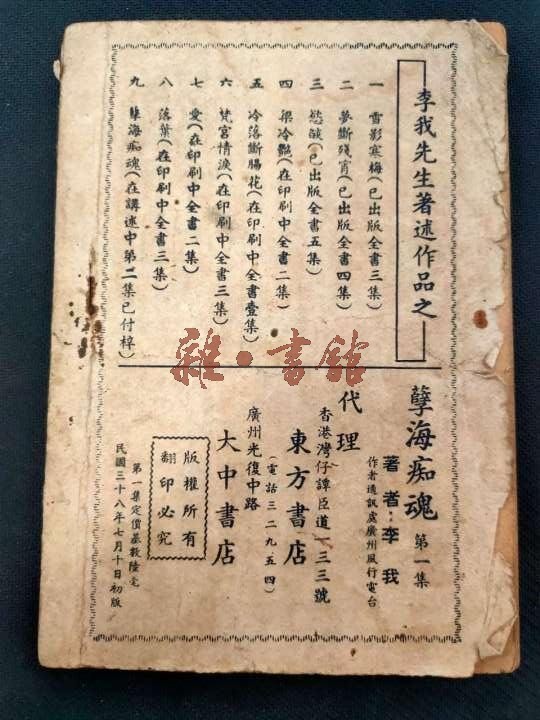 李我先生著述作品之一
一 雪影寒梅(已出版全書三集)
二 夢斷殘宵(已出版全書四集)
三 慾燄(已出版全書五集)
四 梁冷艷(在印刷中全書二集)
五 冷落斷腸花(在印刷中全書壹集)
六 梵宮情淚(在印刷中全書三集)
七 愛(在印刷中全書二集)
八 落葉(在印刷中全書三集)
九 孽海痴魂(在講述中第二集已付梓)
孽海痴魂 第一集
著者·李我
作者通訊處廣州風行電台
代理
香港灣仔譚臣道一三三號
東方書店
(電話三二九五四)
廣州光復中路
大中書店
版權所有
翻印必究
第一集定價基數陸毫
民國三十八年七月十日初版
雜·書館